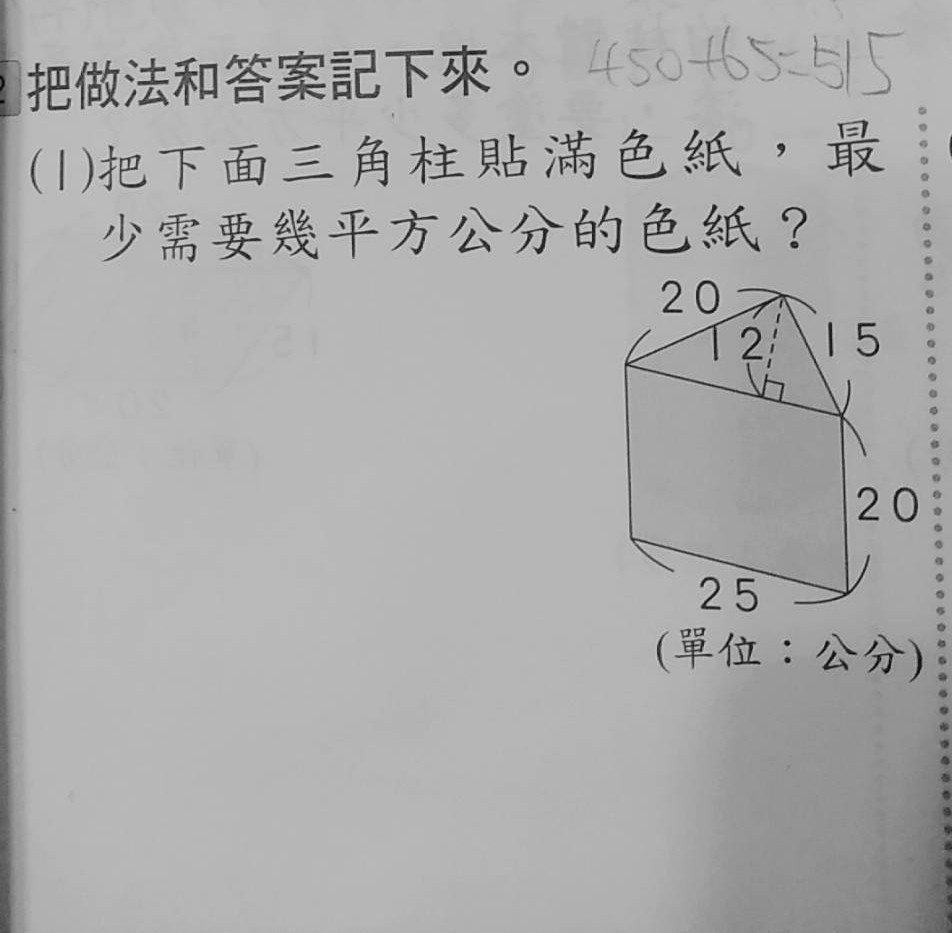 2 把做法和答案記下來。 450+65=515
(1)把下面三角柱貼滿色紙，最
少需要幾平方公分的色紙？
20
12
15
20
25
(單位：公分)